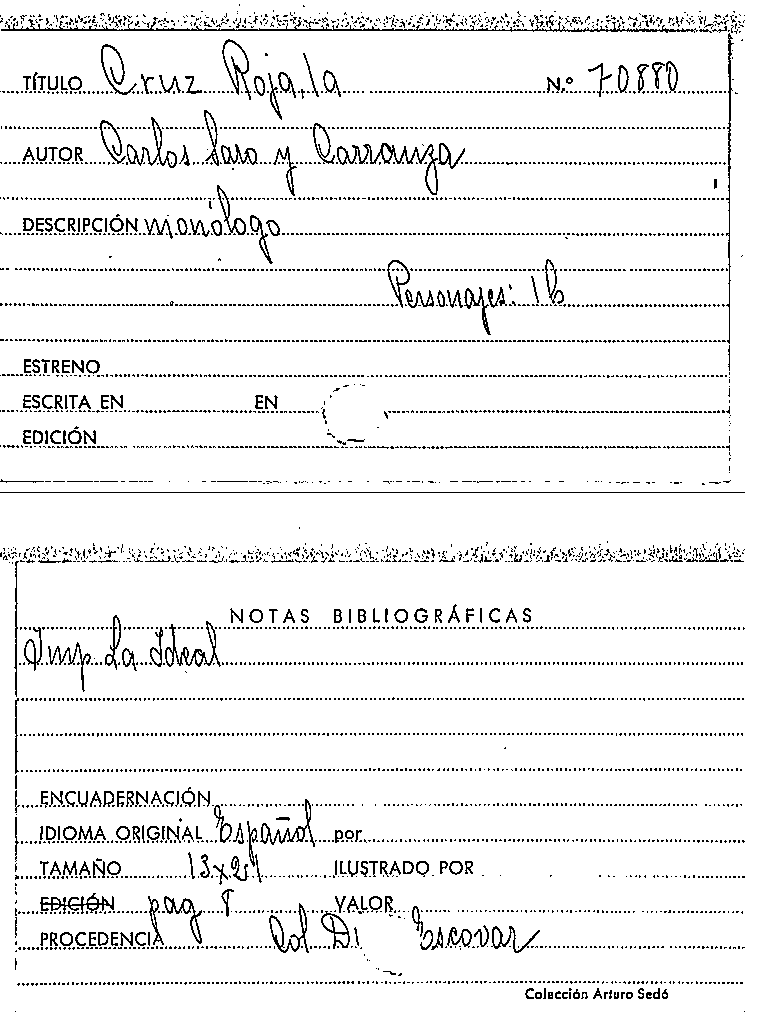 TÍTULO Cruz Roja, la N.º 70880
AUTOR Carlos Saso y Carranza
DESCRIPCIÓN monólogo
Personajes: 1 h
ESTRENO
ESCRITA EN EN
EDICIÓN
NOTAS BIBLIOGRÁFICAS
Imp La Ideal
ENCUADERNACIÓN
IDIOMA ORIGINAL Español por
TAMAÑO 13x21 ILUSTRADO POR
EDICIÓN pag 8 VALOR
PROCEDENCIA Col Di Escovar
Colección Arturo Sedó